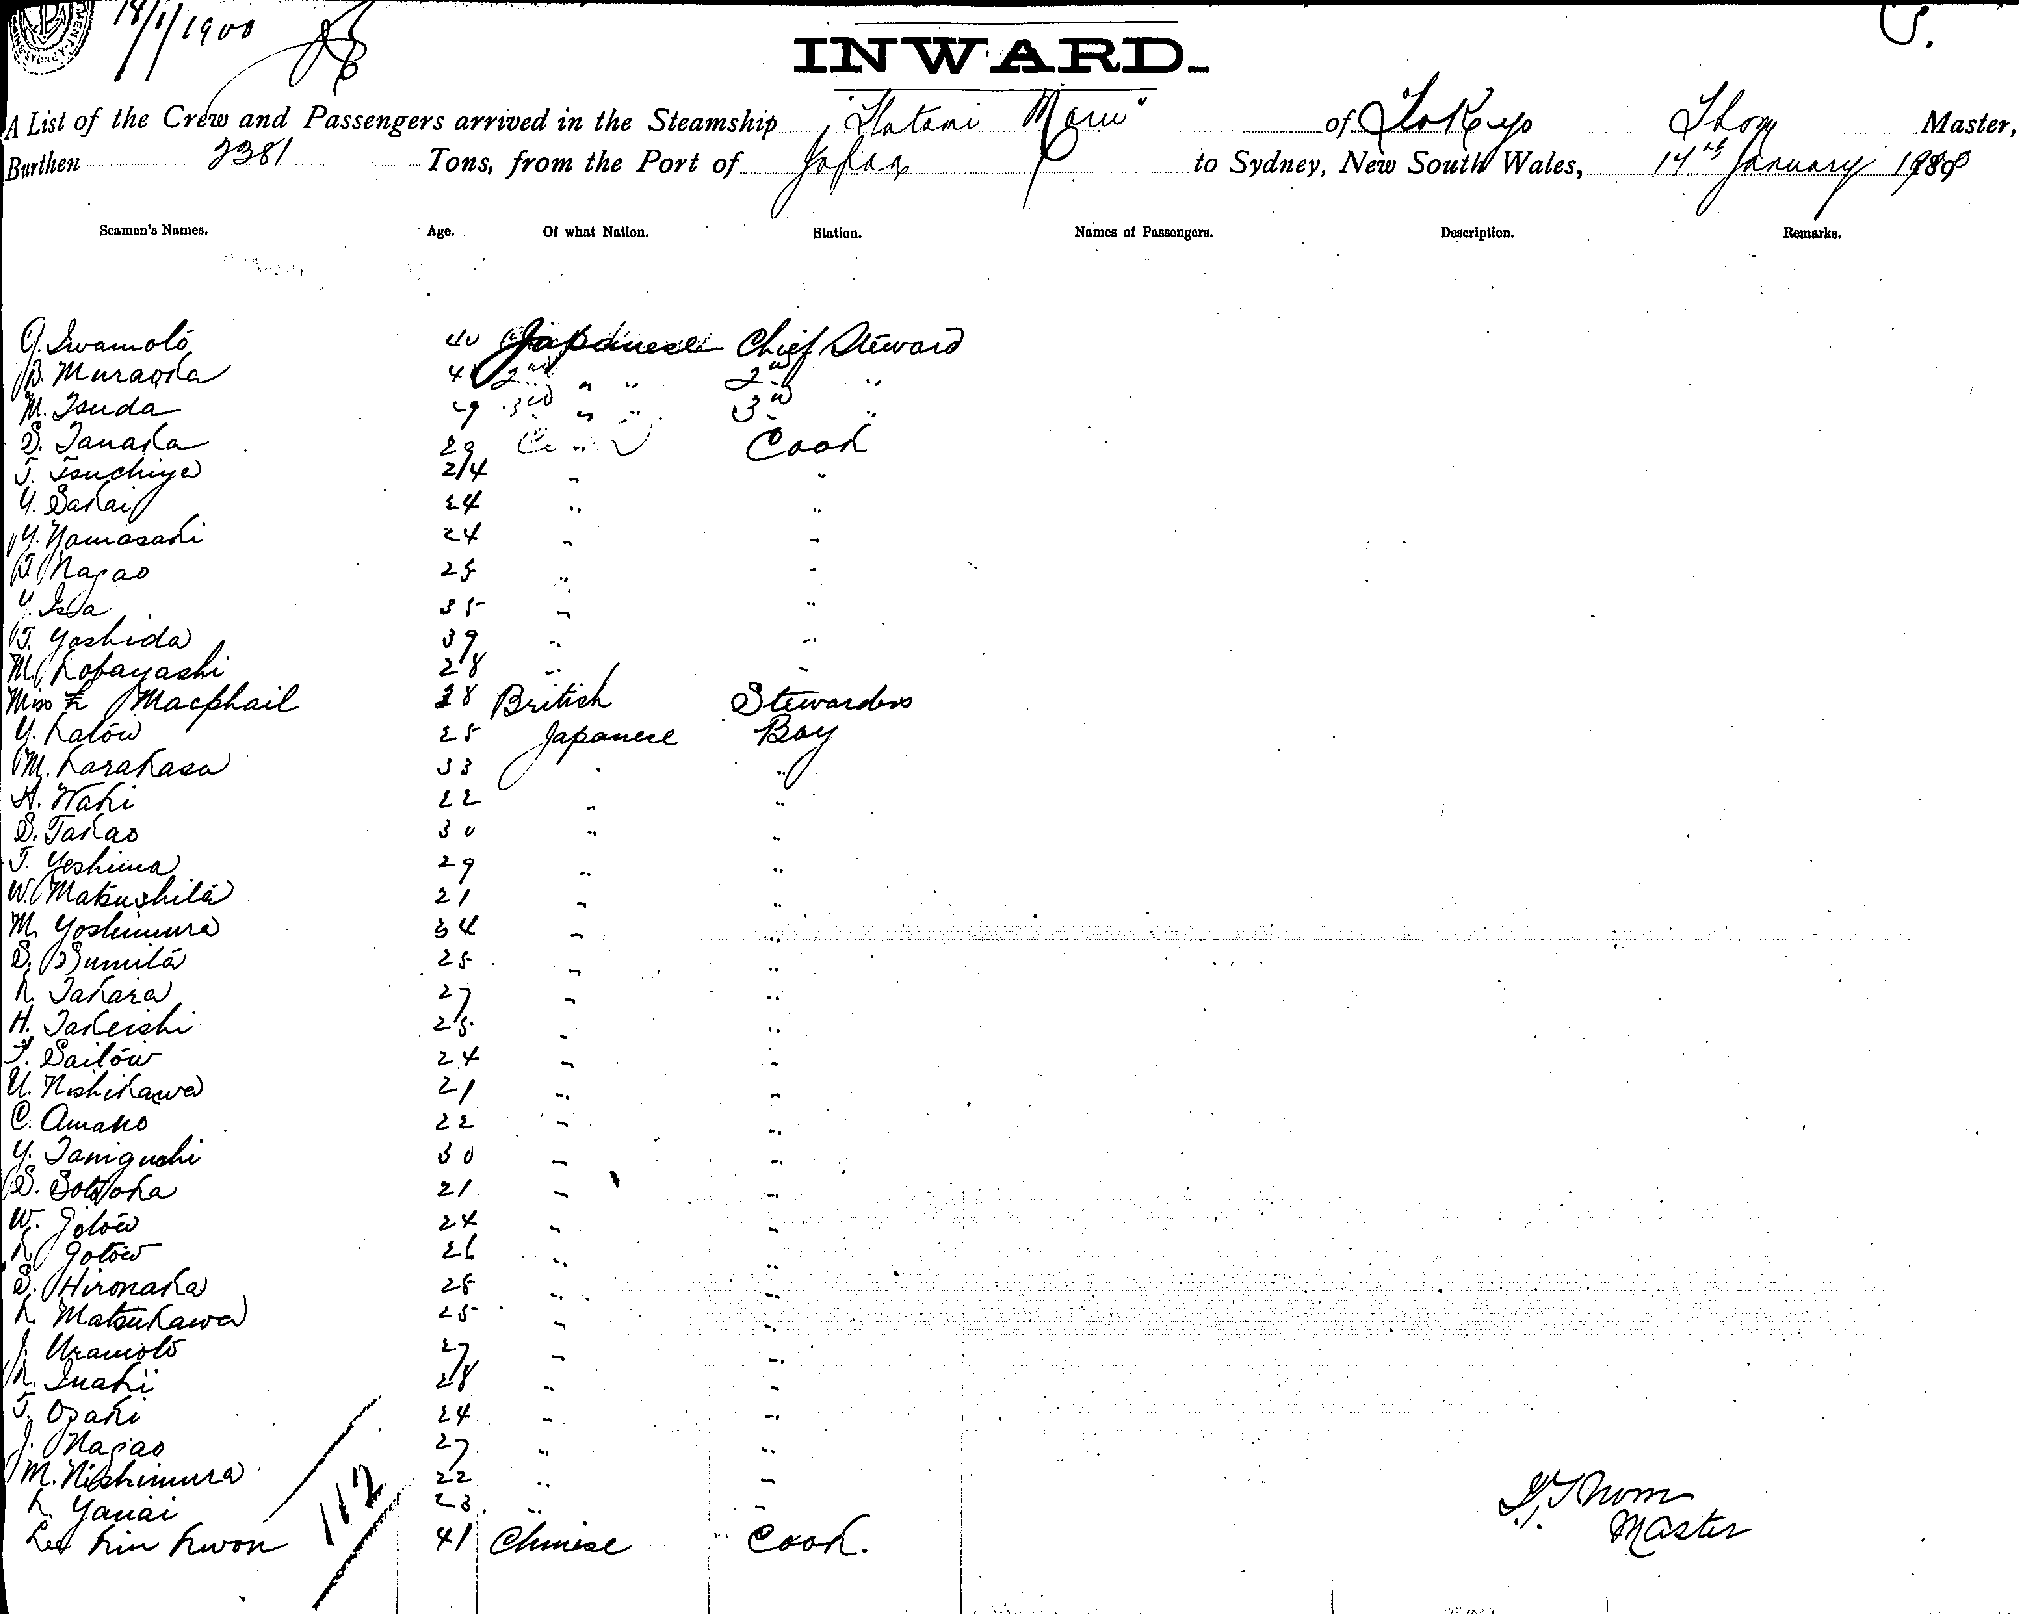 18/1/1900
INWARD.
A List of the Crew and Passengers arrived in the Steamship "Futami Maru" of Tokeyo Thom Master,
Burthen 2381 Tons, from the Port of Japan to Sydney, New South Wales, 14th January 1900
Seamen's Names. Age. Of what Nation. Station. Names of Passengers. Description. Remarks.
G. Iwamoto 40 Japanese Chief Steward
B. Muraoka 41 " " 2nd "
M. Tsuda 29 " " 3rd "
S. Tanaka 29 " Cook
T. Tsuchiya 24 " "
Y. Sakai 24 " "
Y. Yamasaki 24 " "
Nagao 25 " "
Y. Isa 35 " "
T. Yoshida 39 " "
M. Kobayashi 28 " "
Miss Macphail 28 British Stewardess
Y. Katow 25 Japanese Boy
M. Karakasa 33 " "
H. Waki 22 " "
S. Takao 30 " "
T. Yeshima 29 " "
W. Matsushita 21 " "
M. Yoshimura 34 " "
S. Sumita 25 " "
K. Takara 27 " "
H. Takeishi 25 " "
T. Saitow 24 " "
U. Nishikawa 21 " "
C. Amano 22 " "
Y. Taniguchi 30 " "
S. 21 " "
W. Gotow 24 " "
K. Gotow 26 " "
S. Hironaka 25 " "
K. Matsukawa 25 " "
J. Uramoto 27 " "
K. Inaki 28 " "
T. Ozaki 24 " "
J. Nagao 27 " "
M. Nishimura 22 " "
K. Yanai 23 " "
Lee Kin Kwon 41 Chinese Cook.
112
Thom
Master